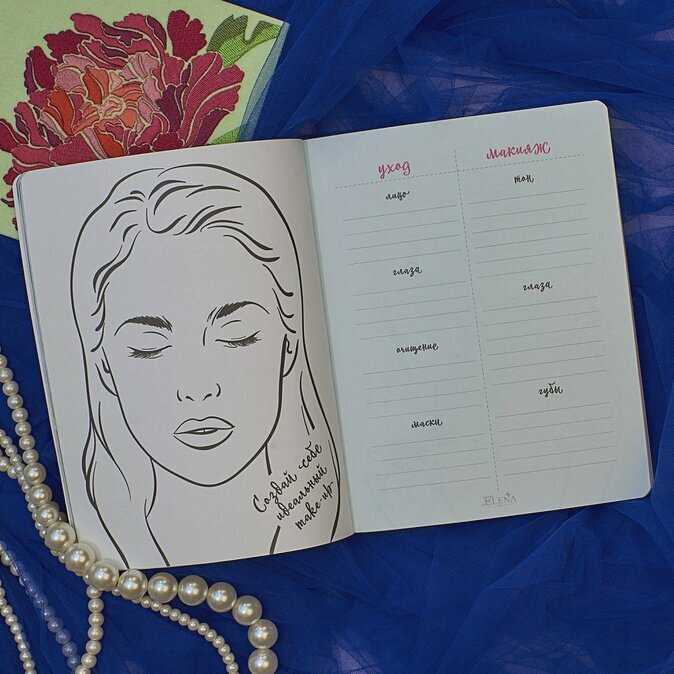 Создай себе
идеальный
make-up
уход
лицо
глаза
очищение
маски
макияж
тон
глаза
губы
ELENA